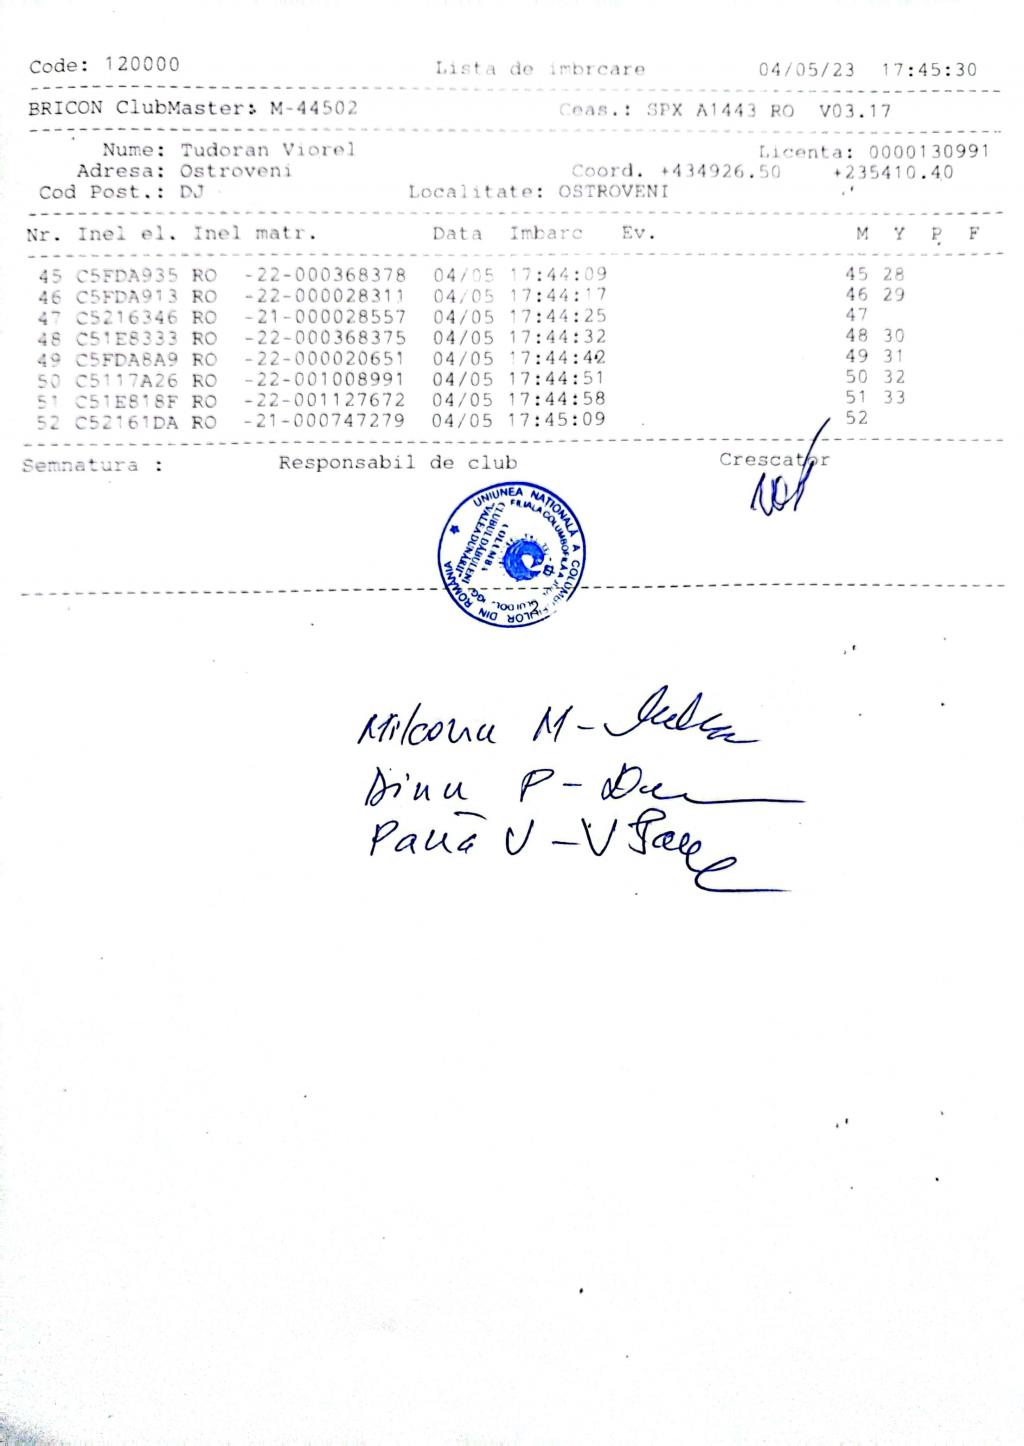 Code: 120000 Lista de imbrcare 04/05/23 17:45:30
BRICON ClubMaster: M-44502 Ceas.: SPX A1443 RO V03.17
Nume: Tudoran Viorel Licenta: 0000130991
Adresa: Ostroveni Coord. +434926.50 +235410.40
Cod Post.: DJ Localitate: OSTROVENI
Nr. Inel el. Inel matr. Data Imbarc Ev. M Y P F
45 C5FDA935 RO -22-000368378 04/05 17:44:09 45 28
46 C5FDA913 RO -22-000028311 04/05 17:44:17 46 29
47 C5216346 RO -21-000028557 04/05 17:44:25 47
48 C51E8333 RO -22-000368375 04/05 17:44:32 48 30
49 C5FDA8A9 RO -22-000020651 04/05 17:44:42 49 31
50 C5117A26 RO -22-001008991 04/05 17:44:51 50 32
51 C51E818F RO -22-001127672 04/05 17:44:58 51 33
52 C52161DA RO -21-000747279 04/05 17:45:09 52
Semnatura : Responsabil de club Crescator
UNIUNEA NATIONALĂ A COLUMBOFILILOR DIN ROMÂNIA
FILIALA COLUMBOFILA
CLUBUL DABULENI
"VALEA DUNARII"
COLUMBA
Milcova M -
Dinu P -
Pană V - V Pană